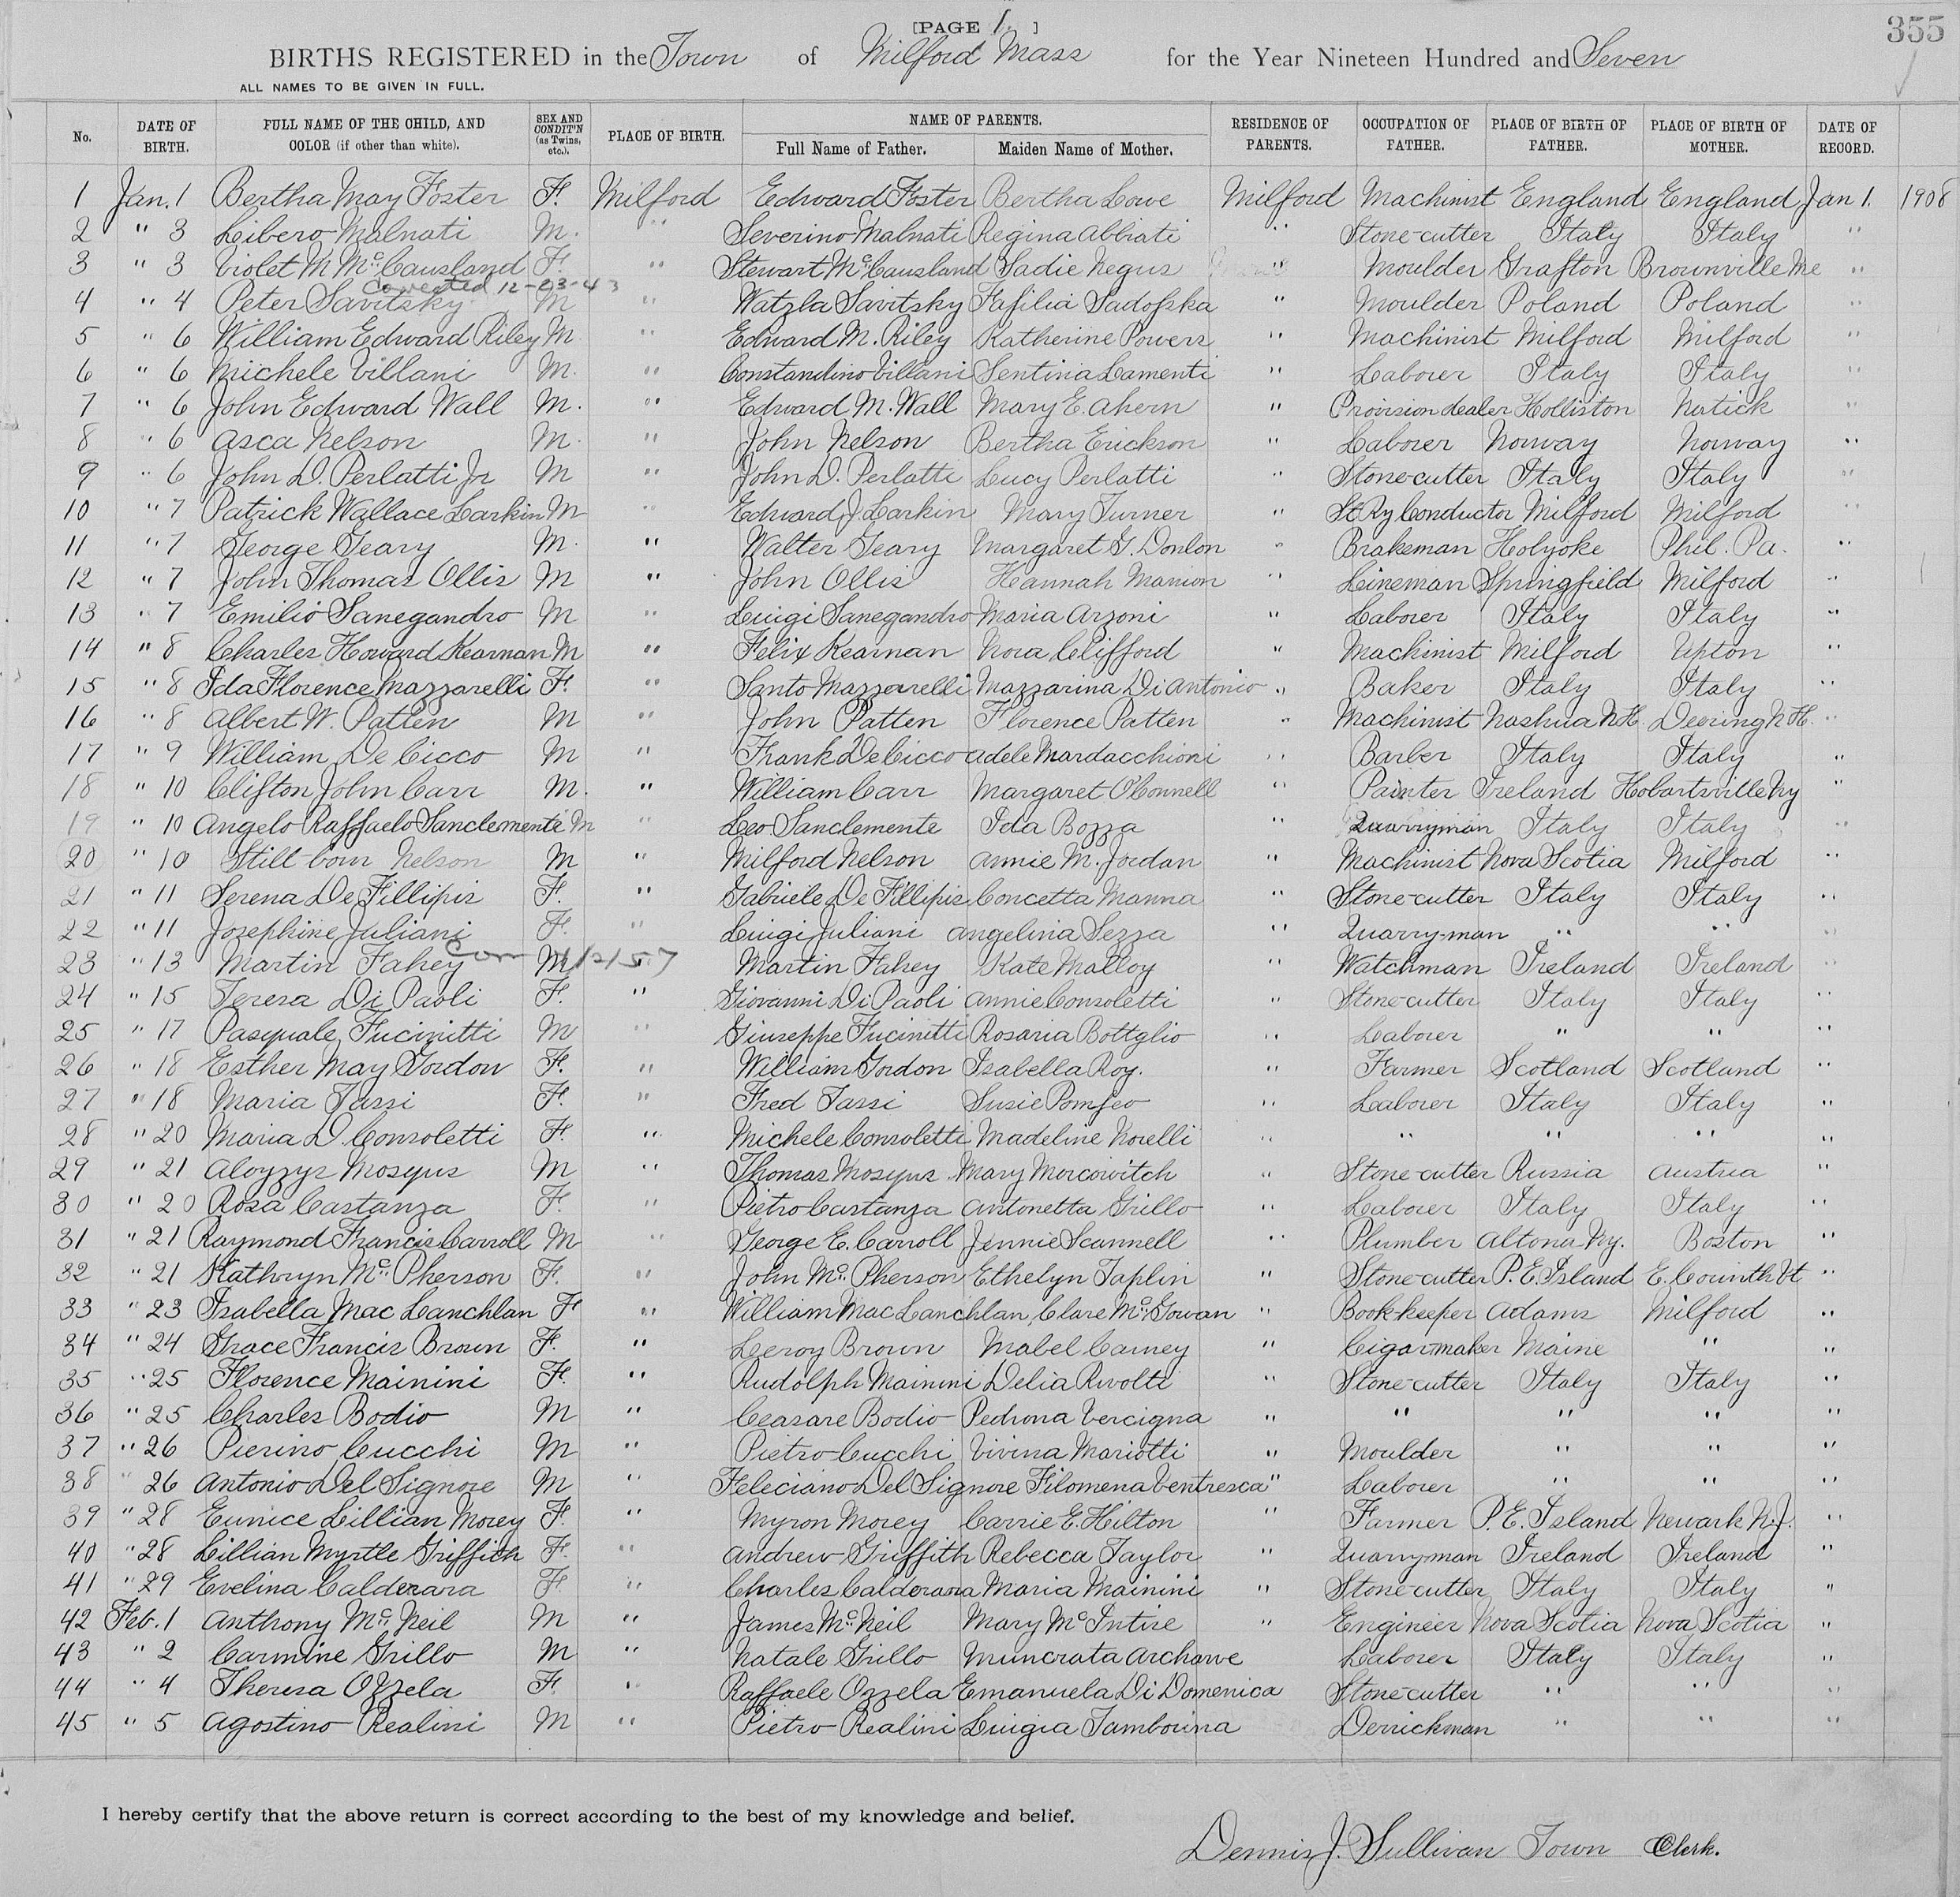 [PAGE 1. ]
355
BIRTHS REGISTERED in the Town of Milford Mass for the Year Nineteen Hundred and Seven
ALL NAMES TO BE GIVEN IN FULL.
No. DATE OF BIRTH. FULL NAME OF THE CHILD, AND COLOR (if other than white). SEX AND CONDIT'N (as Twins, etc.). PLACE OF BIRTH. NAME OF PARENTS. Full Name of Father. Maiden Name of Mother. RESIDENCE OF PARENTS. OCCUPATION OF FATHER. PLACE OF BIRTH OF FATHER. PLACE OF BIRTH OF MOTHER. DATE OF RECORD.
1 Jan. 1 Bertha May Foster F. Milford Edward Foster Bertha Lowe Milford Machinist England England Jan 1. 1908
2 " 3 Libero Malnati M. " Severino Malnati Regina Abbiati " Stone-cutter Italy Italy "
3 " 3 Violet M McCausland F. " Stewart McCausland Sadie Negus " Moulder Grafton Brownville Me "
Corrected 12-23-43
4 " 4 Peter Savitsky M " Watzla Savitsky Fafilia Sadofska " Moulder Poland Poland "
5 " 6 William Edward Riley M " Edward M. Riley Katherine Powers " Machinist Milford Milford "
6 " 6 Michele Villani M. " Constandino Villani Sentina Lamenti " Laborer Italy Italy "
7 " 6 John Edward Wall M. " Edward M. Wall Mary E. Ahern " Provision dealer Holliston Natick "
8 " 6 Asca Nelson M. " John Nelson Bertha Erickson " Laborer Norway Norway "
9 " 6 John D. Perlatti Jr M " John D. Perlatti Lucy Perlatti " Stone-cutter Italy Italy "
10 " 7 Patrick Wallace Larkin M " Edward J. Larkin Mary Turner " St Ry Conductor Milford Milford "
11 " 7 George Geary M. " Walter Geary Margaret G. Donlon " Brakeman Holyoke Phil. Pa. "
12 " 7 John Thomas Ollis M " John Ollis Hannah Manion " Lineman Springfield Milford "
13 " 7 Emilio Sanegandro M " Luigi Sanegandro Maria Arzoni " Laborer Italy Italy "
14 " 8 Charles Howard Kearnan M " Felix Kearnan Nora Clifford " Machinist Milford Upton "
15 " 8 Ida Florence Mazzarelli F. " Santo Mazzarelli Mazzarina Di Antonio " Baker Italy Italy "
16 " 8 Albert W. Patten M " John Patten Florence Patten " Machinist Nashua N.H. Deering N.H. "
17 " 9 William De Cicco M " Frank De Cicco Adele Mardacchioni " Barber Italy Italy "
18 " 10 Clifton John Carr M. " William Carr Margaret O'Connell " Painter Ireland Hobartsville Ny "
19 " 10 Angelo Raffaelo Sanclemente M Leo Sanclemente Ida Bozza " Quarryman Italy Italy "
20 " 10 Still-born Nelson M " Milford Nelson Annie M. Jordan " Machinist Nova Scotia Milford "
21 " 11 Serena De Fillipis F. " Gabriele De Fillipis Concetta Manna " Stone-cutter Italy Italy "
22 " 11 Josephine Juliani F. " Luigi Juliani Angelina Sezza " Quarry-man " " "
23 " 13 Martin Fahey Corr M 1/2/57 Martin Fahey Kate Malloy Watchman Ireland Ireland "
24 " 15 Teresa Di Paoli F. " Giovanni Di Paoli Annie Consoletti " Stone-cutter Italy Italy "
25 " 17 Pasquale Fucinitti M " Giuseppe Fucinitti Rosaria Bottglio " Laborer " " "
26 " 18 Esther May Gordon F. " William Gordon Isabella Roy. " Farmer Scotland Scotland "
27 " 18 Maria Tassi F. " Fred Tassi Susie Pomfeo " Laborer Italy Italy "
28 " 20 Maria D. Consoletti F. " Michele Consoletti Madeline Norelli " " " " "
29 " 21 Aloyzys Mosyus M " Thomas Mosyus Mary Morcowitch " Stone-cutter Russia Austria "
30 " 20 Rosa Castanza F. " Pietro Castanza Antonetta Grillo " Laborer Italy Italy "
31 " 21 Raymond Francis Carroll M " George E. Carroll Jennie Scannell " Plumber Altona Ny. Boston "
32 " 21 Kathryn McPherson F. " John McPherson Ethelyn Taplin " Stone-cutter P.E. Island E. Corinth Vt "
33 " 23 Isabella Mac Lanchlan F " William Mac Lanchlan Clare McGowan " Bookkeeper Adams Milford "
34 " 24 Grace Francis Brown F. " Leroy Brown Mabel Carney " Cigar-maker Maine " "
35 " 25 Florence Mainini F. " Rudolph Mainini Delia Rivolti " Stone-cutter Italy Italy "
36 " 25 Charles Bodio M " Ceasare Bodio Pedrona Vercigna " " " " "
37 " 26 Pierino Cucchi M " Pietro Cucchi Vivina Mariotti " Moulder " " "
38 " 26 Antonio Del Signore M " Feleciano Del Signore Filomena Ventresca " Laborer " " "
39 " 28 Eunice Lillian Morey F. " Myron Morey Carrie E. Hilton " Farmer P.E. Island Newark N.J. "
40 " 28 Lillian Myrtle Griffith F. " Andrew Griffith Rebecca Taylor " Quarryman Ireland Ireland "
41 " 29 Evelina Calderara F. " Charles Calderara Maria Mainini " Stone-cutter Italy Italy "
42 Feb. 1 Anthony McNeil M " James McNeil Mary McIntire " Engineer Nova Scotia Nova Scotia "
43 " 2 Carmine Grillo M " Natale Grillo Muncrata Archawe Laborer Italy Italy "
44 " 4 Theresa Ozzela F. " Raffaele Ozzela Emanuela Di Domenica Stone-cutter " " "
45 " 5 Agostino Realini M " Pietro Realini Luigia Tamborina Derrickman " " "
I hereby certify that the above return is correct according to the best of my knowledge and belief.
Dennis J. Sullivan Town Clerk.